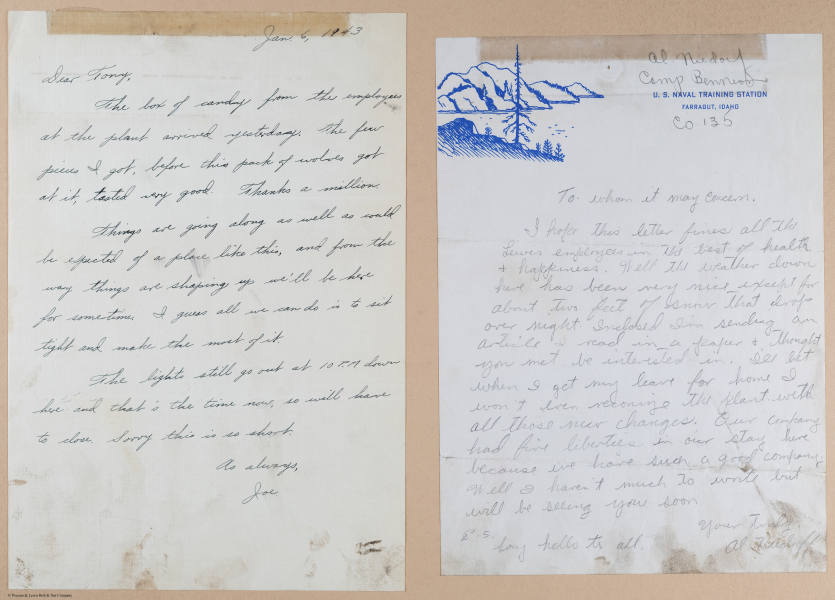 Jan. 6, 1943
Dear Tony,
The box of candy from the employees
at the plant arrived yesterday. The few
pieces I got, before this pack of wolves got
at it, tasted very good. Thanks a million.
Things are going along as well as could
be expected of a place like this, and from the
way things are shaping up we'll be here
for sometime. I guess all we can do is to sit
tight and make the most of it
The lights still go out at 10 P.M down
here and that's the time now, so will have
to close. Sorry this is so short.
As always,
Joe.
Al
Camp Bennion
U. S. NAVAL TRAINING STATION
FARRAGUT, IDAHO
Co 135
To whom it may concern.
I hope this letter fines all the
Lewis employees in the best of health
+ happiness. Well the weather down
here has been very nice except for
about two feet of snow that drop
over night. Inclosed I'm sending an
article I read in a paper + thought
you met be interested in. I'll bet
when I get my leave for home I
won't even reconize the plant with
all those new changes. Our company
had five liberties in our stay here
because we have such a good company.
Well I haven't much to write but
will be seeing you soon
Your Truly
P.S. Say hello to all.
Al
© Pearson & Lewis Bolt & Nut Company